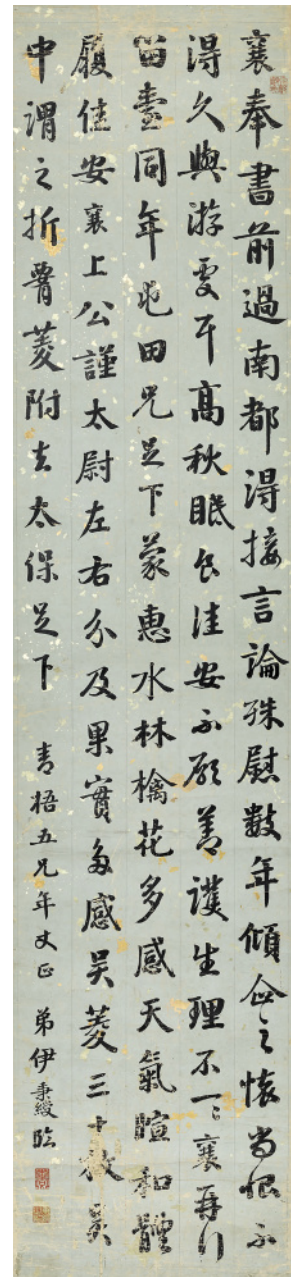 襄奉書前過南都得接言論殊慰數年傾企之懷尚恨不
得久與游更耳高秋眠食佳安不願善護生理不一一襄再行
留臺同年屯田兄足下蒙惠水林檎花多感天氣暄和體
履佳安襄上公謹太尉左右分及果實多感吴菱三十枚吴
中謂之折腰菱附去太保足下 青梧五兄年丈正 弟伊秉綬臨